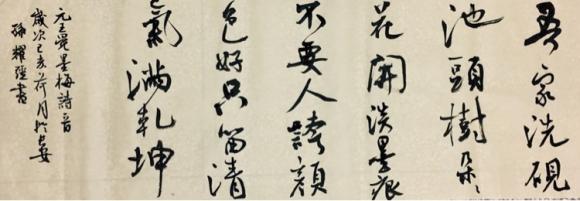 吾家洗硯
池頭樹朵々
花開淡墨痕
不要人誇顔
色好只留清
氣滿乾坤
元王冕墨梅詩一首
歲次己亥荷月於
孫耀書